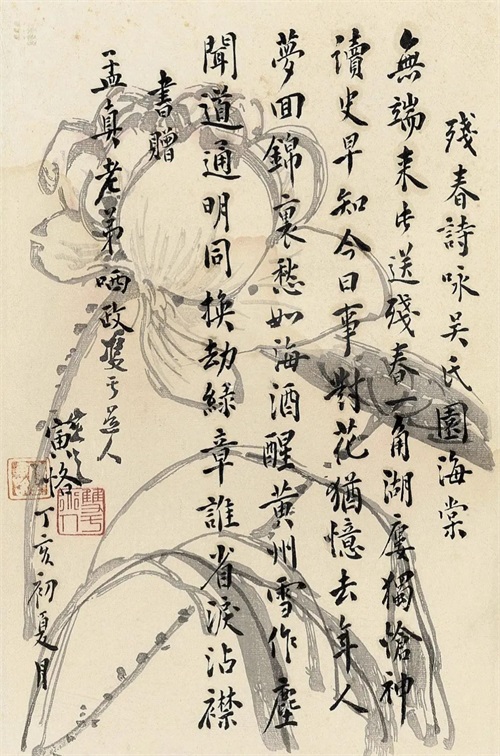 殘春詩咏吳氏園海棠
無端来此送殘春一角湖廔獨愴神
讀史早知今日事對花猶憶去年人
夢囬錦裏愁如海酒醒黃州雪作塵
聞道通明同換劫綠章誰省淚沾襟
書贈
孟真老弟哂政道人
寅恪丁亥初夏月